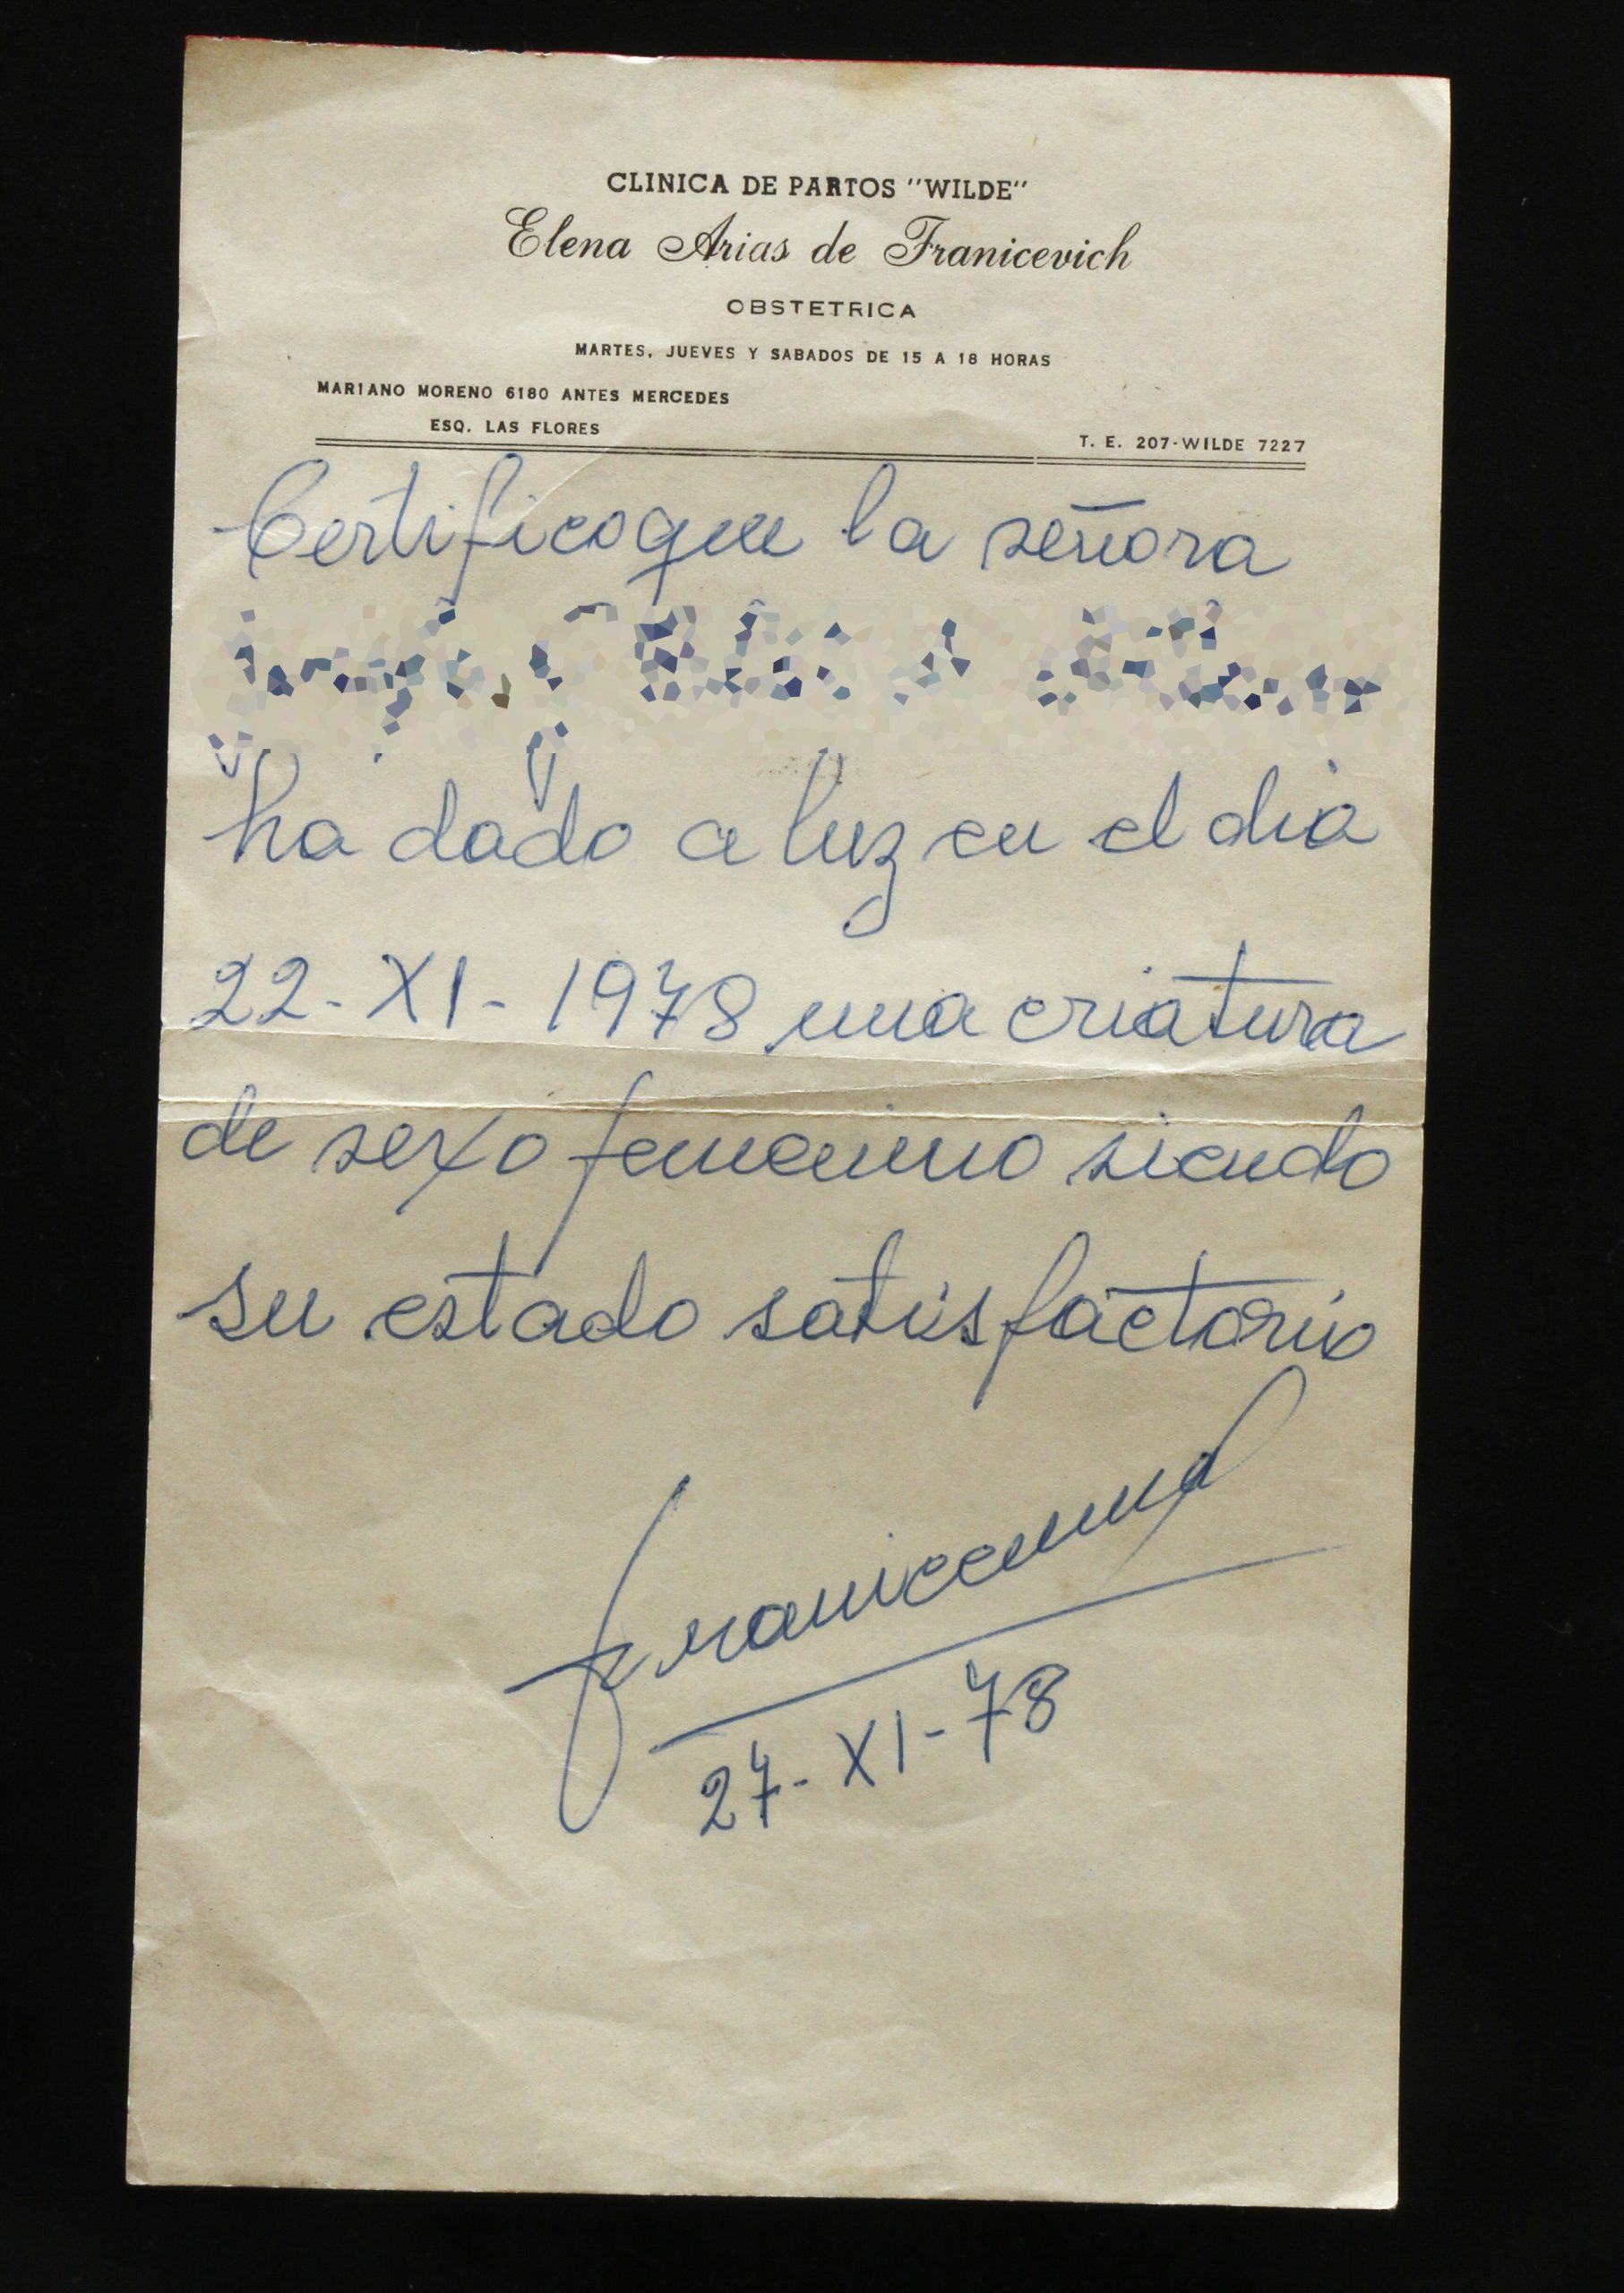 CLINICA DE PARTOS "WILDE"
Elena Arias de Franicevich
OBSTETRICA
MARTES, JUEVES Y SABADOS DE 15 A 18 HORAS
MARIANO MORENO 6180 ANTES MERCEDES
ESQ. LAS FLORES
T. E. 207-WILDE 7227
Certifico que la señora
ha dado a luz en el dia
22-XI-1978 una criatura
de sexo femenino siendo
su estado satisfactorio
Franicevich
27-XI-78